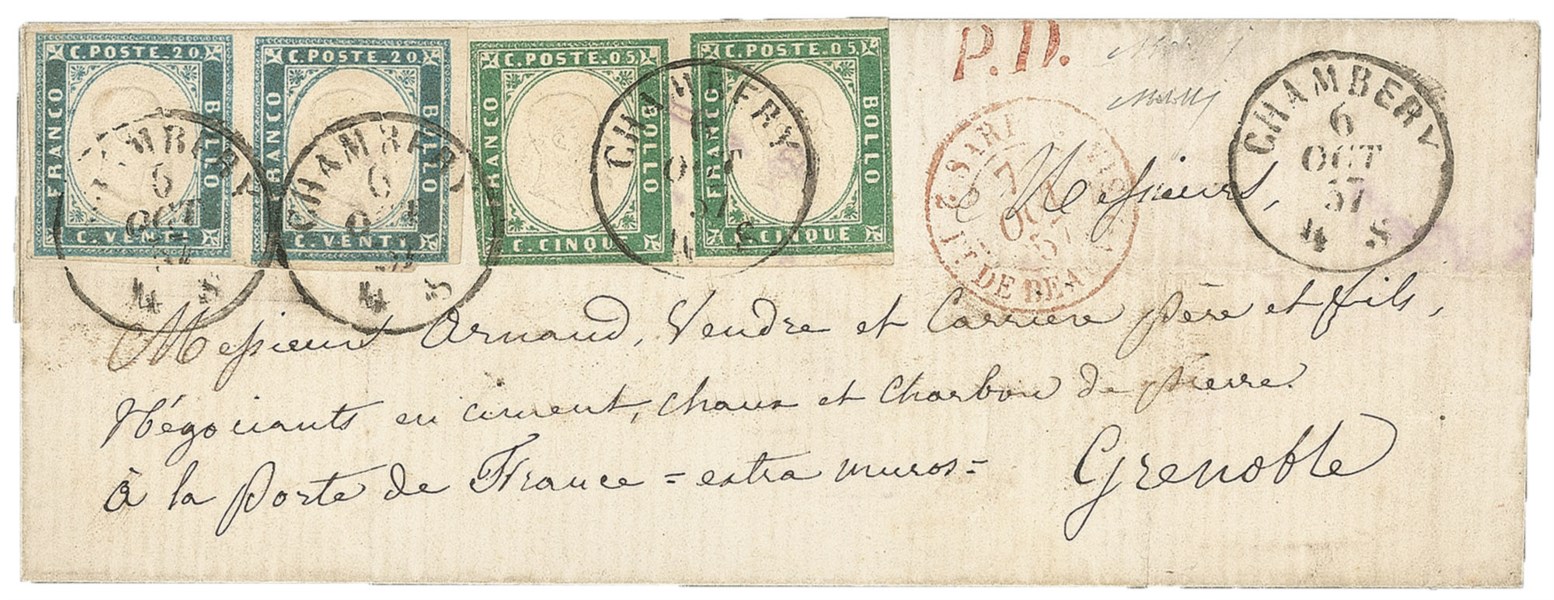 C. POSTE. 20.
FRANCO
BOLLO
C. VENTI
C. POSTE. 20.
FRANCO
BOLLO
C. VENTI
C. POSTE. 05.
FRANCO
BOLLO
C. CINQU
C. POSTE. 05.
FRANCO
BOLLO
C. CINQUE
CHAMBERY
6
OCT
57
4 S
CHAMBERY
6
OCT
57
4 S
CHAMBERY
6
OCT
57
4 S
P.D.
2 SARD
7
OCT
57
PT DE BEAU
CHAMBERY
6
OCT
57
4 S
Messieurs,
Messieurs Arnaud, Vendre et Carriere père et fils,
Négociants en ciment, chaux et charbon de pierre
à la porte de France = extra muros =
Grenoble